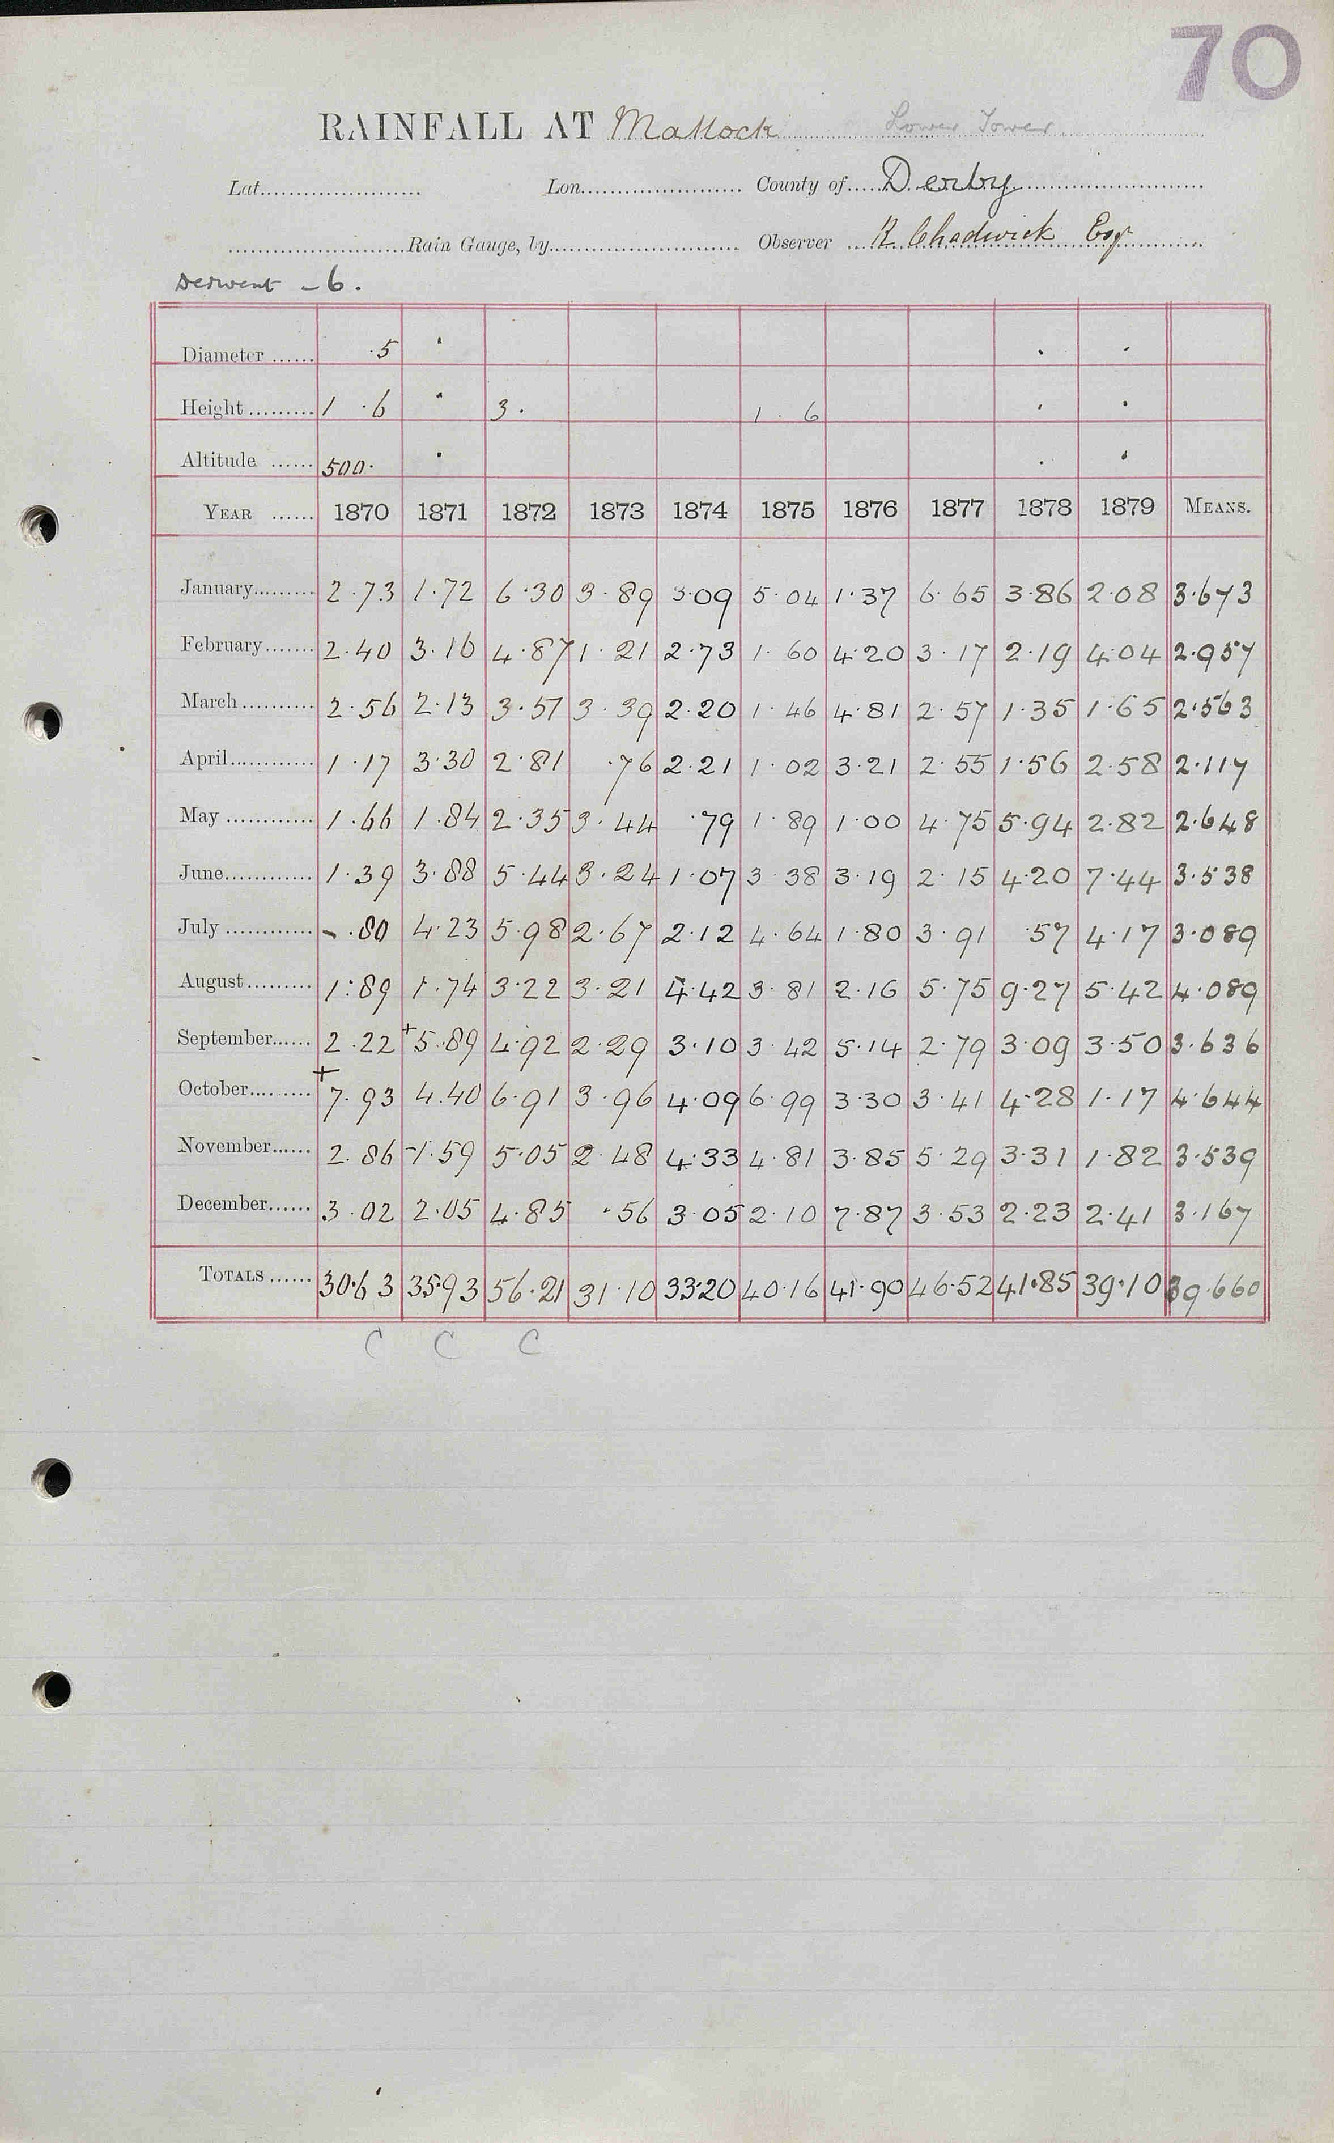 70
RAINFALL AT Matlock Lower Tower
Lat. Lon. County of Derby
Rain Gauge, by Observer R. Chadwick Esq
Derwent - 6.
Diameter 5
Height 1 . 6 3. 1 . 6
Altitude 500.
YEAR 1870 1871 1872 1873 1874 1875 1876 1877 1878 1879 MEANS.
January 2.73 1.72 6.30 3.89 3.09 5.04 1.37 6.65 3.86 2.08 3.673
February 2.40 3.16 4.87 1.21 2.73 1.60 4.20 3.17 2.19 4.04 2.957
March 2.56 2.13 3.57 3.39 2.20 1.46 4.81 2.57 1.35 1.65 2.563
April 1.17 3.30 2.81 .76 2.21 1.02 3.21 2.55 1.56 2.58 2.117
May 1.66 1.84 2.35 3.44 .79 1.89 1.00 4.75 5.94 2.82 2.648
June 1.39 3.88 5.44 3.24 1.07 3.38 3.19 2.15 4.20 7.44 3.538
July - .80 4.23 5.98 2.67 2.12 4.64 1.80 3.91 .57 4.17 3.089
August 1.89 1.74 3.22 3.21 4.42 3.81 2.16 5.75 9.27 5.42 4.089
September 2.22 +5.89 4.92 2.29 3.10 3.42 5.14 2.79 3.09 3.50 3.636
October +7.93 4.40 6.91 3.96 4.09 6.99 3.30 3.41 4.28 1.17 4.644
November 2.86 -1.59 5.05 2.48 4.33 4.81 3.85 5.29 3.31 1.82 3.539
December 3.02 2.05 4.85 .56 3.05 2.10 7.87 3.53 2.23 2.41 3.167
TOTALS 30.63 35.93 56.21 31.10 33.20 40.16 41.90 46.52 41.85 39.10 39.660
C C C